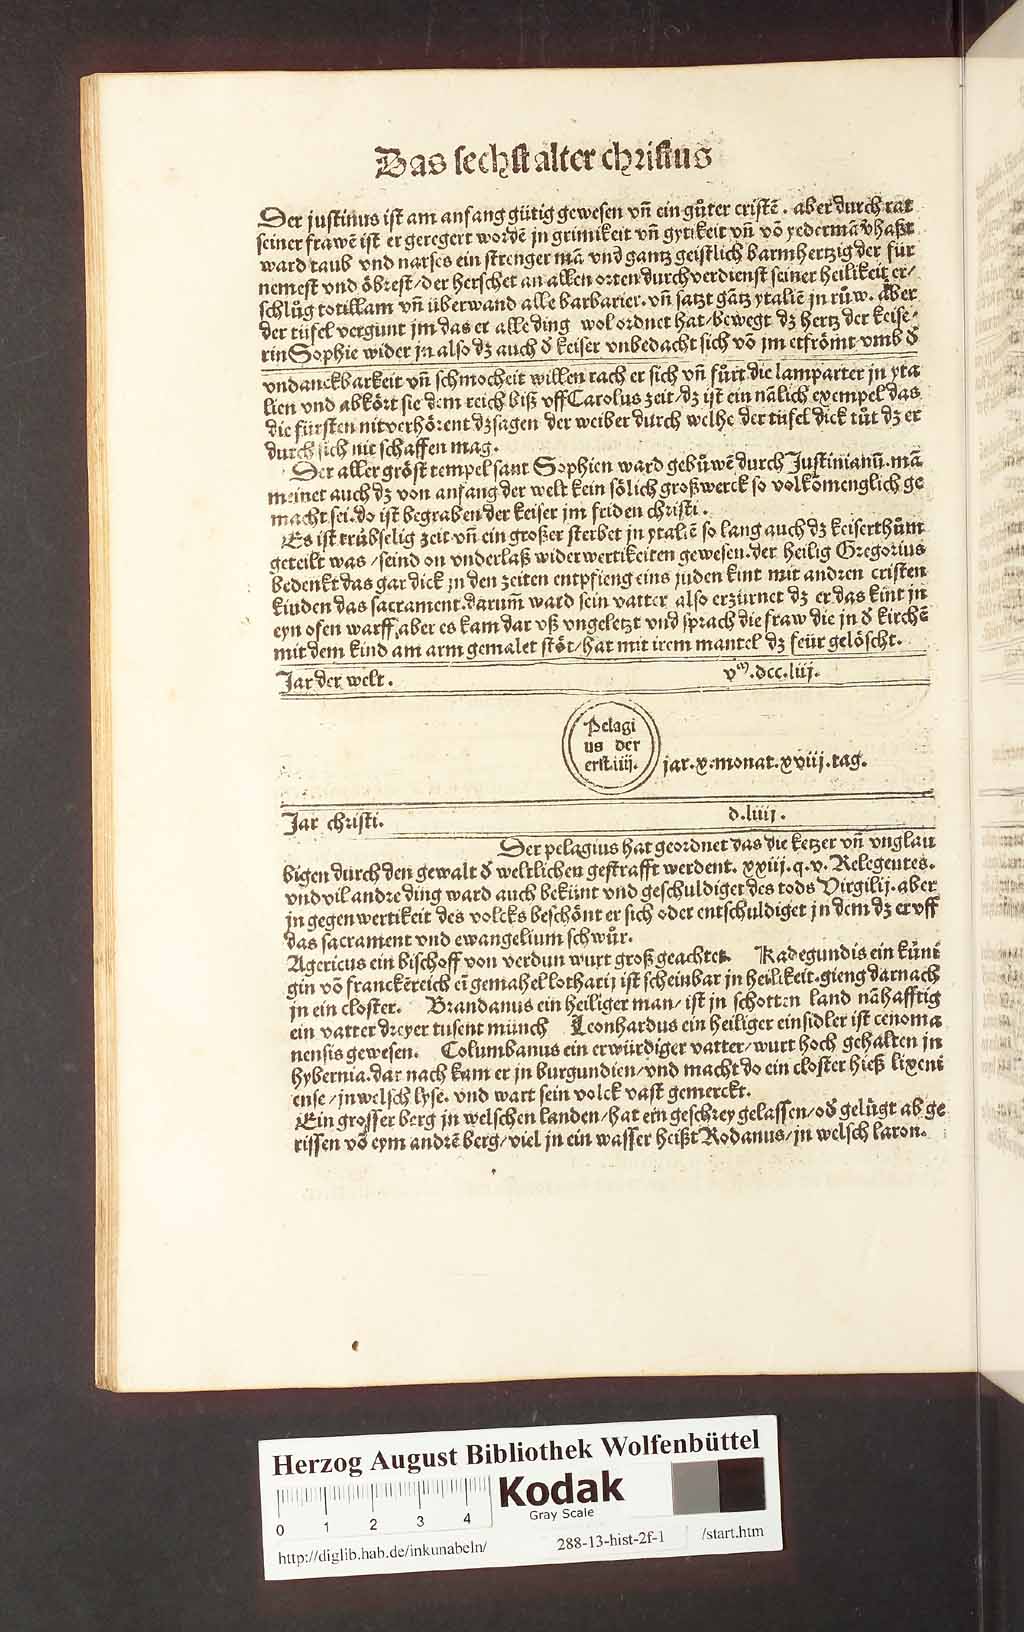 Das sechst alter christus
Der justinus ist am anfang gütig gewesen vñ ein gůter cristẽ. aber durch rat
seiner frawẽ ist er geregert wordẽ jn grimikeit vñ gytikeit vñ võ yedermã vhaßt
ward taub vnd narses ein strenger mã vnd gantz geistlich barmhertzig der für
nemest vnd öbrest/der herschet an allen orten durch verdienst seiner heilikeit er/
schlůg totillam vñ überwand alle barbarier. vñ satzt gãtz ytaliẽ jn růw. aber
der tüfel vergunt jm das er alle ding wol ordnet hat/bewegt dz hertz der keise/
rin Sophie wider jn also dz auch d̕ keiser vnbedacht sich võ jm etfrömt vmb d̕
vndanckbarkeit vñ schmocheit willen rach er sich vñ fůrt die lamparter jn yta
lien vnd abkört sie dem reich biß vff Carolus zeit/dz ist ein nãlich exempel das
die fürsten nit verhörent dz sagen der weiber durch welhe der tüfel dick tůt dz er
durch sich nit schaffen mag.
Der aller gröst tempel sant Sophien ward gebůwẽ durch Justinianũ. mã
meinet auch dz von anfang der welt kein sölich groß werck so volkõmenglich ge
macht sei. do ist begraben der keiser jm friden christi.
Es ist trübselig zeit vñ ein großer sterbet jn ytaliẽ so lang auch dz keiserthům
geteilt was/seind on vnderlaß widerwertikeiten gewesen. der heilig Gregorius
bedenkt das gar dick jn den zeiten entpfieng eins juden kint mit andren cristen
kinden das sacrament. darum̃ ward sein vatter also erzürnet dz er das kint jn
eyn ofen warff, aber es kam dar vß vngeletzt vnd sprach die fraw die jn d̕ kirchẽ
mit dem kind am arm gemalet stöt/hat mit irem mantel dz feür gelöscht.
Jar der welt. vᵐ.dcc.liij.
Pelagi
us der
erst.iiij. jar.x.monat.xviij.tag.
Jar christi. d.liiij.
Der pelagius hat geordnet das die ketzer vñ vnglau
bigen durch den gewalt d̕ weltlichen gestrafft werdent. xxiij.q.v. Relegentes.
vnd vil andre ding ward auch bekünt vnd geschuldiget des tods Virgilij. aber
jn gegenwertikeit des volcks beschönt er sich oder entschuldiget jn dem dz er vff
das sacrament vnd ewangelium schwůr.
Agericus ein bischoff von verdun wurt groß geachtet. Radegundis ein küni
gin võ franckẽreich eĩ gemahel lotharij ist scheinbar jn heilikeit. gieng darnach
jn ein closter. Brandanus ein heiliger man/ist jn schotten land nãhafftig
ein vatter dreyer tusent münch Leonhardus ein heiliger einsidler ist cenoma
nensis gewesen. Columbanus ein erwürdiger vatter/wurt hoch gehalten jn
hybernia. dar nach kam er jn burgundien/vnd macht do ein closter hieß lixoni
ense/jn welsch lyse. vnd wart sein volck vast gemerckt.
Ein grosser berg jn welschen landen/hat ein geschrey gelassen/od̕ gelügt ab ge
rissen võ eym andrẽ berg/viel jn ein wasser heißt Rodanus/jn welsch laron.
Herzog August Bibliothek Wolfenbüttel
Kodak
Gray Scale
0 1 2 3 4
http://diglib.hab.de/inkunabeln/ 288-13-hist-2f-1 /start.htm